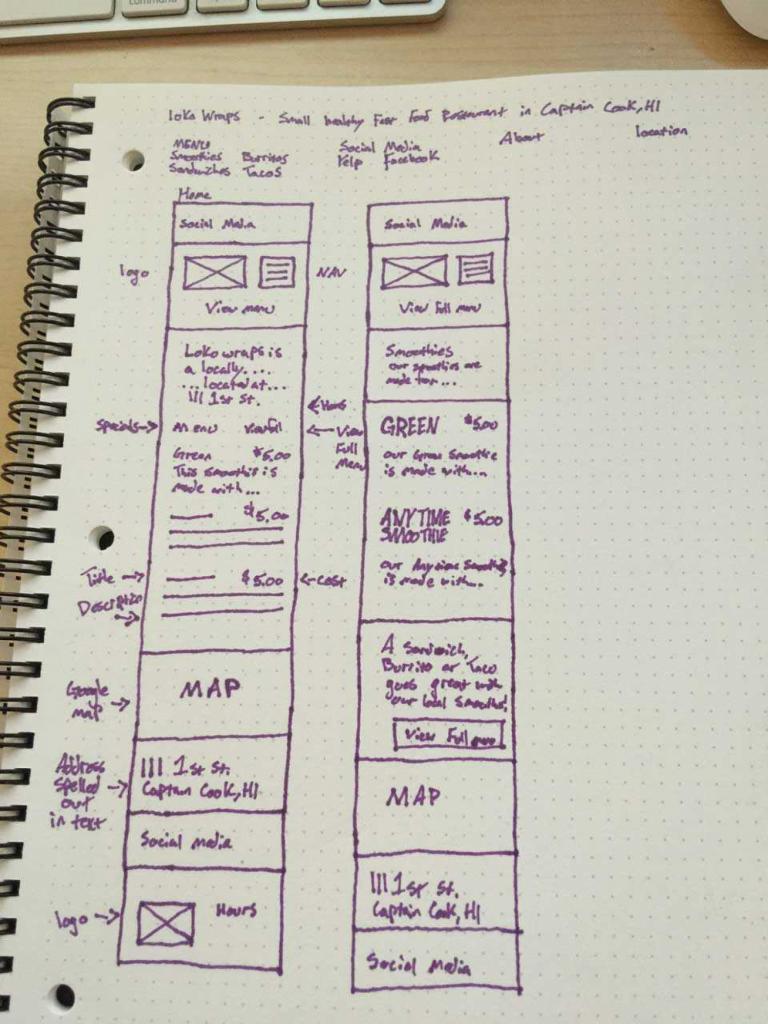 command
Loko Wraps - Small healthy Fast Food Restaurant in Captain Cook, HI
MENU
Smoothies Burritos
Sandwiches Tacos
Social Media
Yelp Facebook
About
location
Home
Social Media
logo
NAV
View menu
Loko wraps is
a locally....
... located at...
111 1st St.
Specials
Menu View full
View
Full
Menu
Green $5.00
This smoothie is
made with...
$5.00
Title
$5.00
Cost
Description
Google
map
MAP
Address
spelled
out
in text
111 1st St.
Captain Cook, HI
Social media
logo
Hours
Social Media
View Full menu
Smoothies
our smoothies are
made from...
GREEN $5.00
our Green Smoothie
is made with...
ANYTIME $5.00
SMOOTHIE
our Anytime Smoothie
is made with...
A Sandwich,
Burrito or Taco
goes great with
our local Smoothies!
View Full menu
MAP
111 1st St.
Captain Cook, HI
Social Media